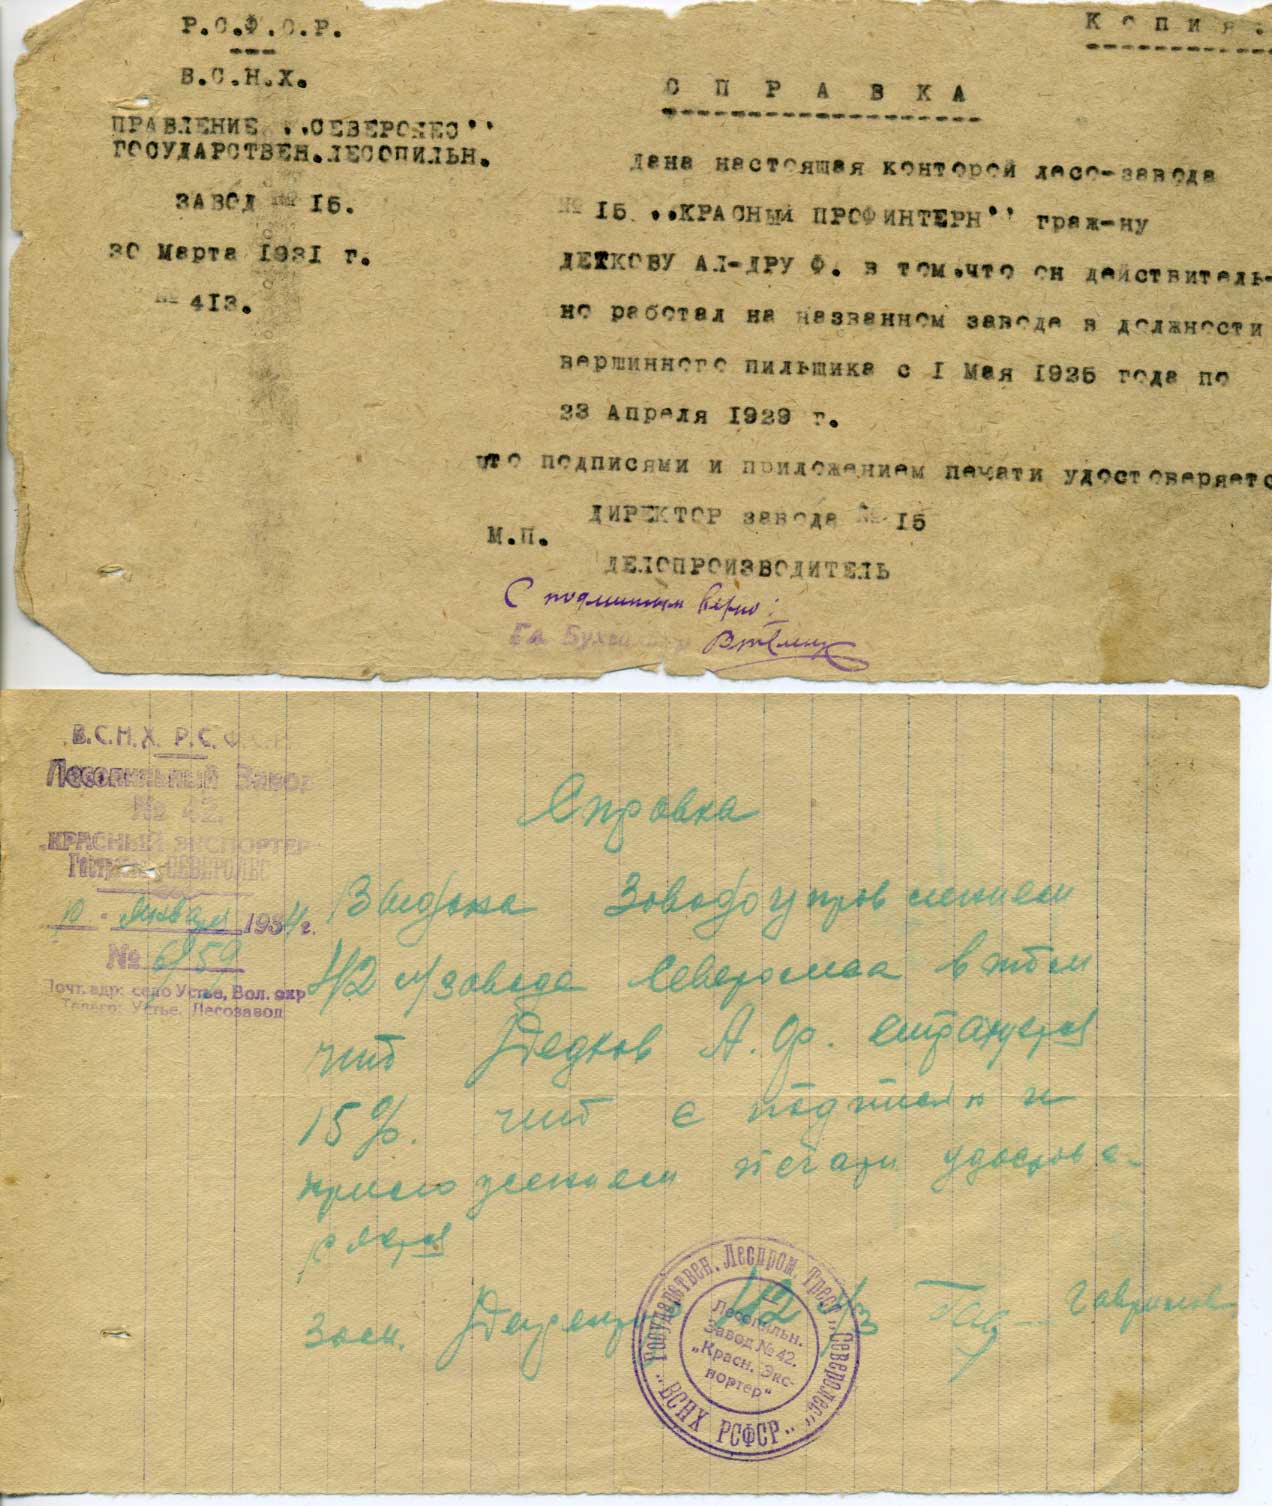 Р.С.Ф.С.Р.
В.С.Н.Х.
ПРАВЛЕНИЕ ,,СЕВЕРОЛЕС''
ГОСУДАРСТВЕН.ЛЕСОПИЛЬН.
ЗАВОД № 15.
30 Марта 1931 г.
№ 413.
КОПИЯ.
СПРАВКА
Дана настоящая конторой лесо-завода
№ 15 ,,КРАСНЫЙ ПРОФИНТЕРН'' граж-ну
ДЕТКОВУ АЛ-ДРУ Ф. в том,что он действитель-
но работал на названном заводе в должности
вершинного пильщика с 1 Мая 1925 года по
23 Апреля 1929 г.
что подписями и приложением печати удостоверяетс
ДИРЕКТОР завода № 15
М.П.
ДЕЛОПРОИЗВОДИТЕЛЬ
С подлинным верно:
Гл. Бухгалтер
В.С.Н.Х. Р.С.Ф.С.Р.
Лесопильный Завод
№ 42.
„КРАСНЫЙ ЭКСПОРТЕР"
Гостреста СЕВЕРОЛЕС
10 - января 1934 г.
№ 6/59
Почт. адр: село Устье, Вол. окр
Телегр: Устье, Лесозавод
Справка
Выдана Заводоуправлением
42 л/завода Северолеса в том
что Дедков А. Ф. страхуется
15 ф. что с подписью и
приложением печати удостове-
ряется
Зам. Директора 42 л/з Гав Гаврилов
Государствен. Леспром. Трест „Северолес"
„ВСНХ РСФСР"
Лесопильн.
Завод № 42.
„Красн. Экс-
портер"